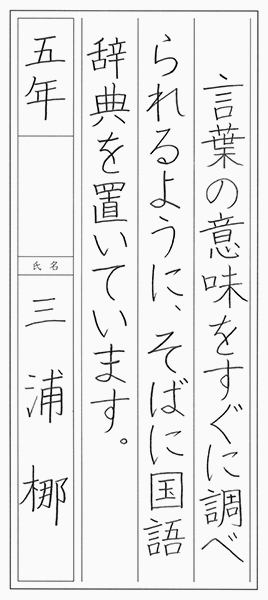 言葉の意味をすぐに調べ
られるように、そばに国語
辞典を置いています。
五年
氏名
三浦梛